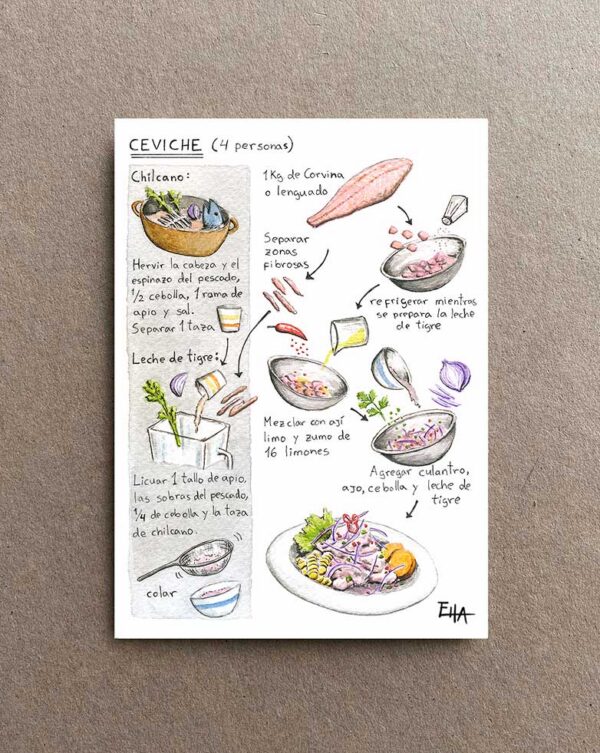 CEVICHE (4 personas)
Chilcano:
Hervir la cabeza y el
espinazo del pescado,
1/2 cebolla, 1 rama de
apio y sal.
Separar 1 taza
Leche de tigre:
Licuar 1 tallo de apio,
las sobras del pescado,
1/4 de cebolla y la taza
de chilcano.
colar
1Kg de Corvina
o lenguado
Separar
zonas
fibrosas
refrigerar mientras
se prepara la leche
de tigre
Mezclar con ají
limo y zumo de
16 limones
Agregar culantro,
ajo, cebolla y leche de
tigre
EHA